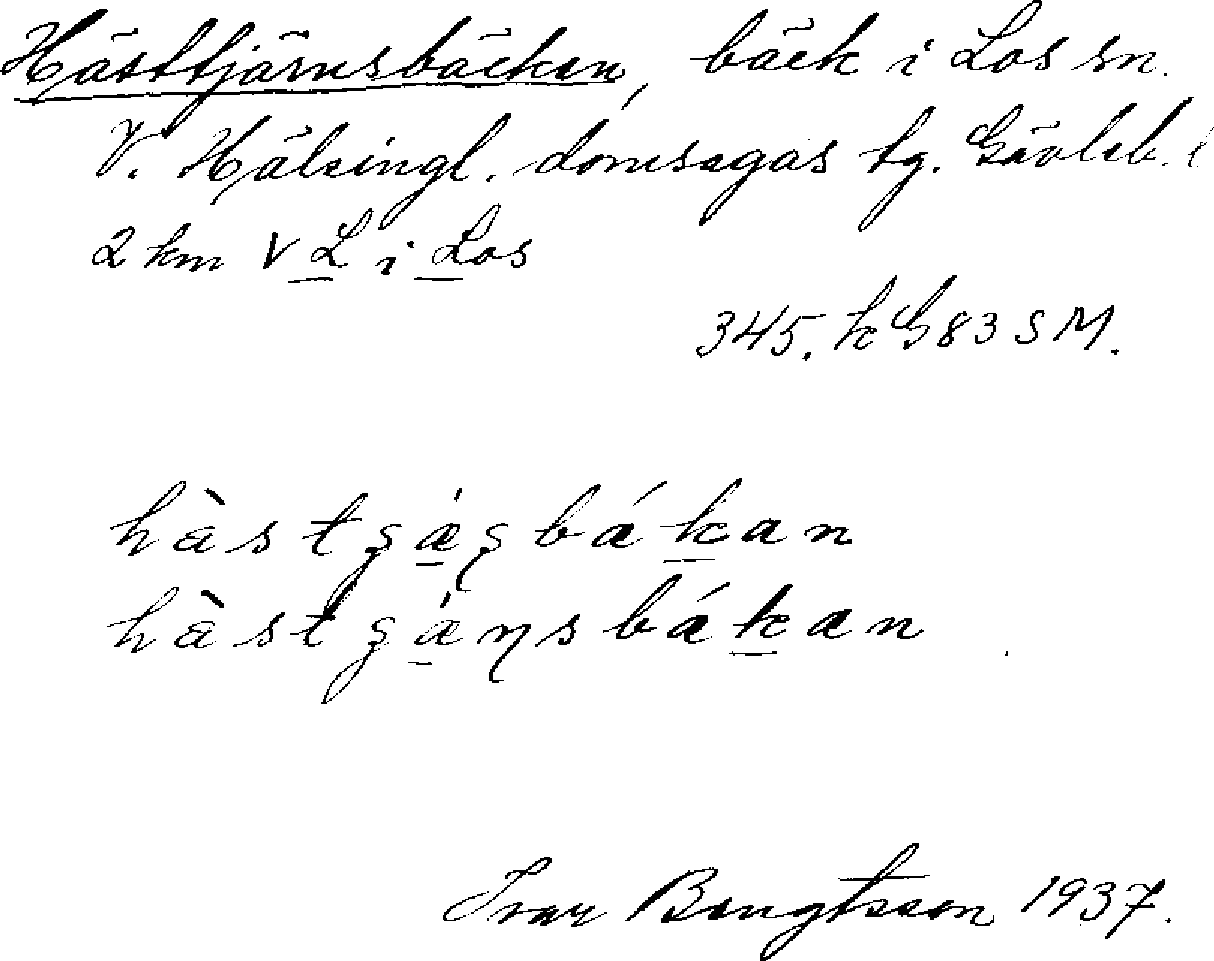 Hästtjärnsbäcken, bäck i Los sn.
V. Hälsingl. domsagas tg. Gävleb. l
2 km V L i Los
345. k G 83 S M.
hàstʂǽʂbákan
hàstʂǽɳsbákan
Ivar Bengtsson 1937.